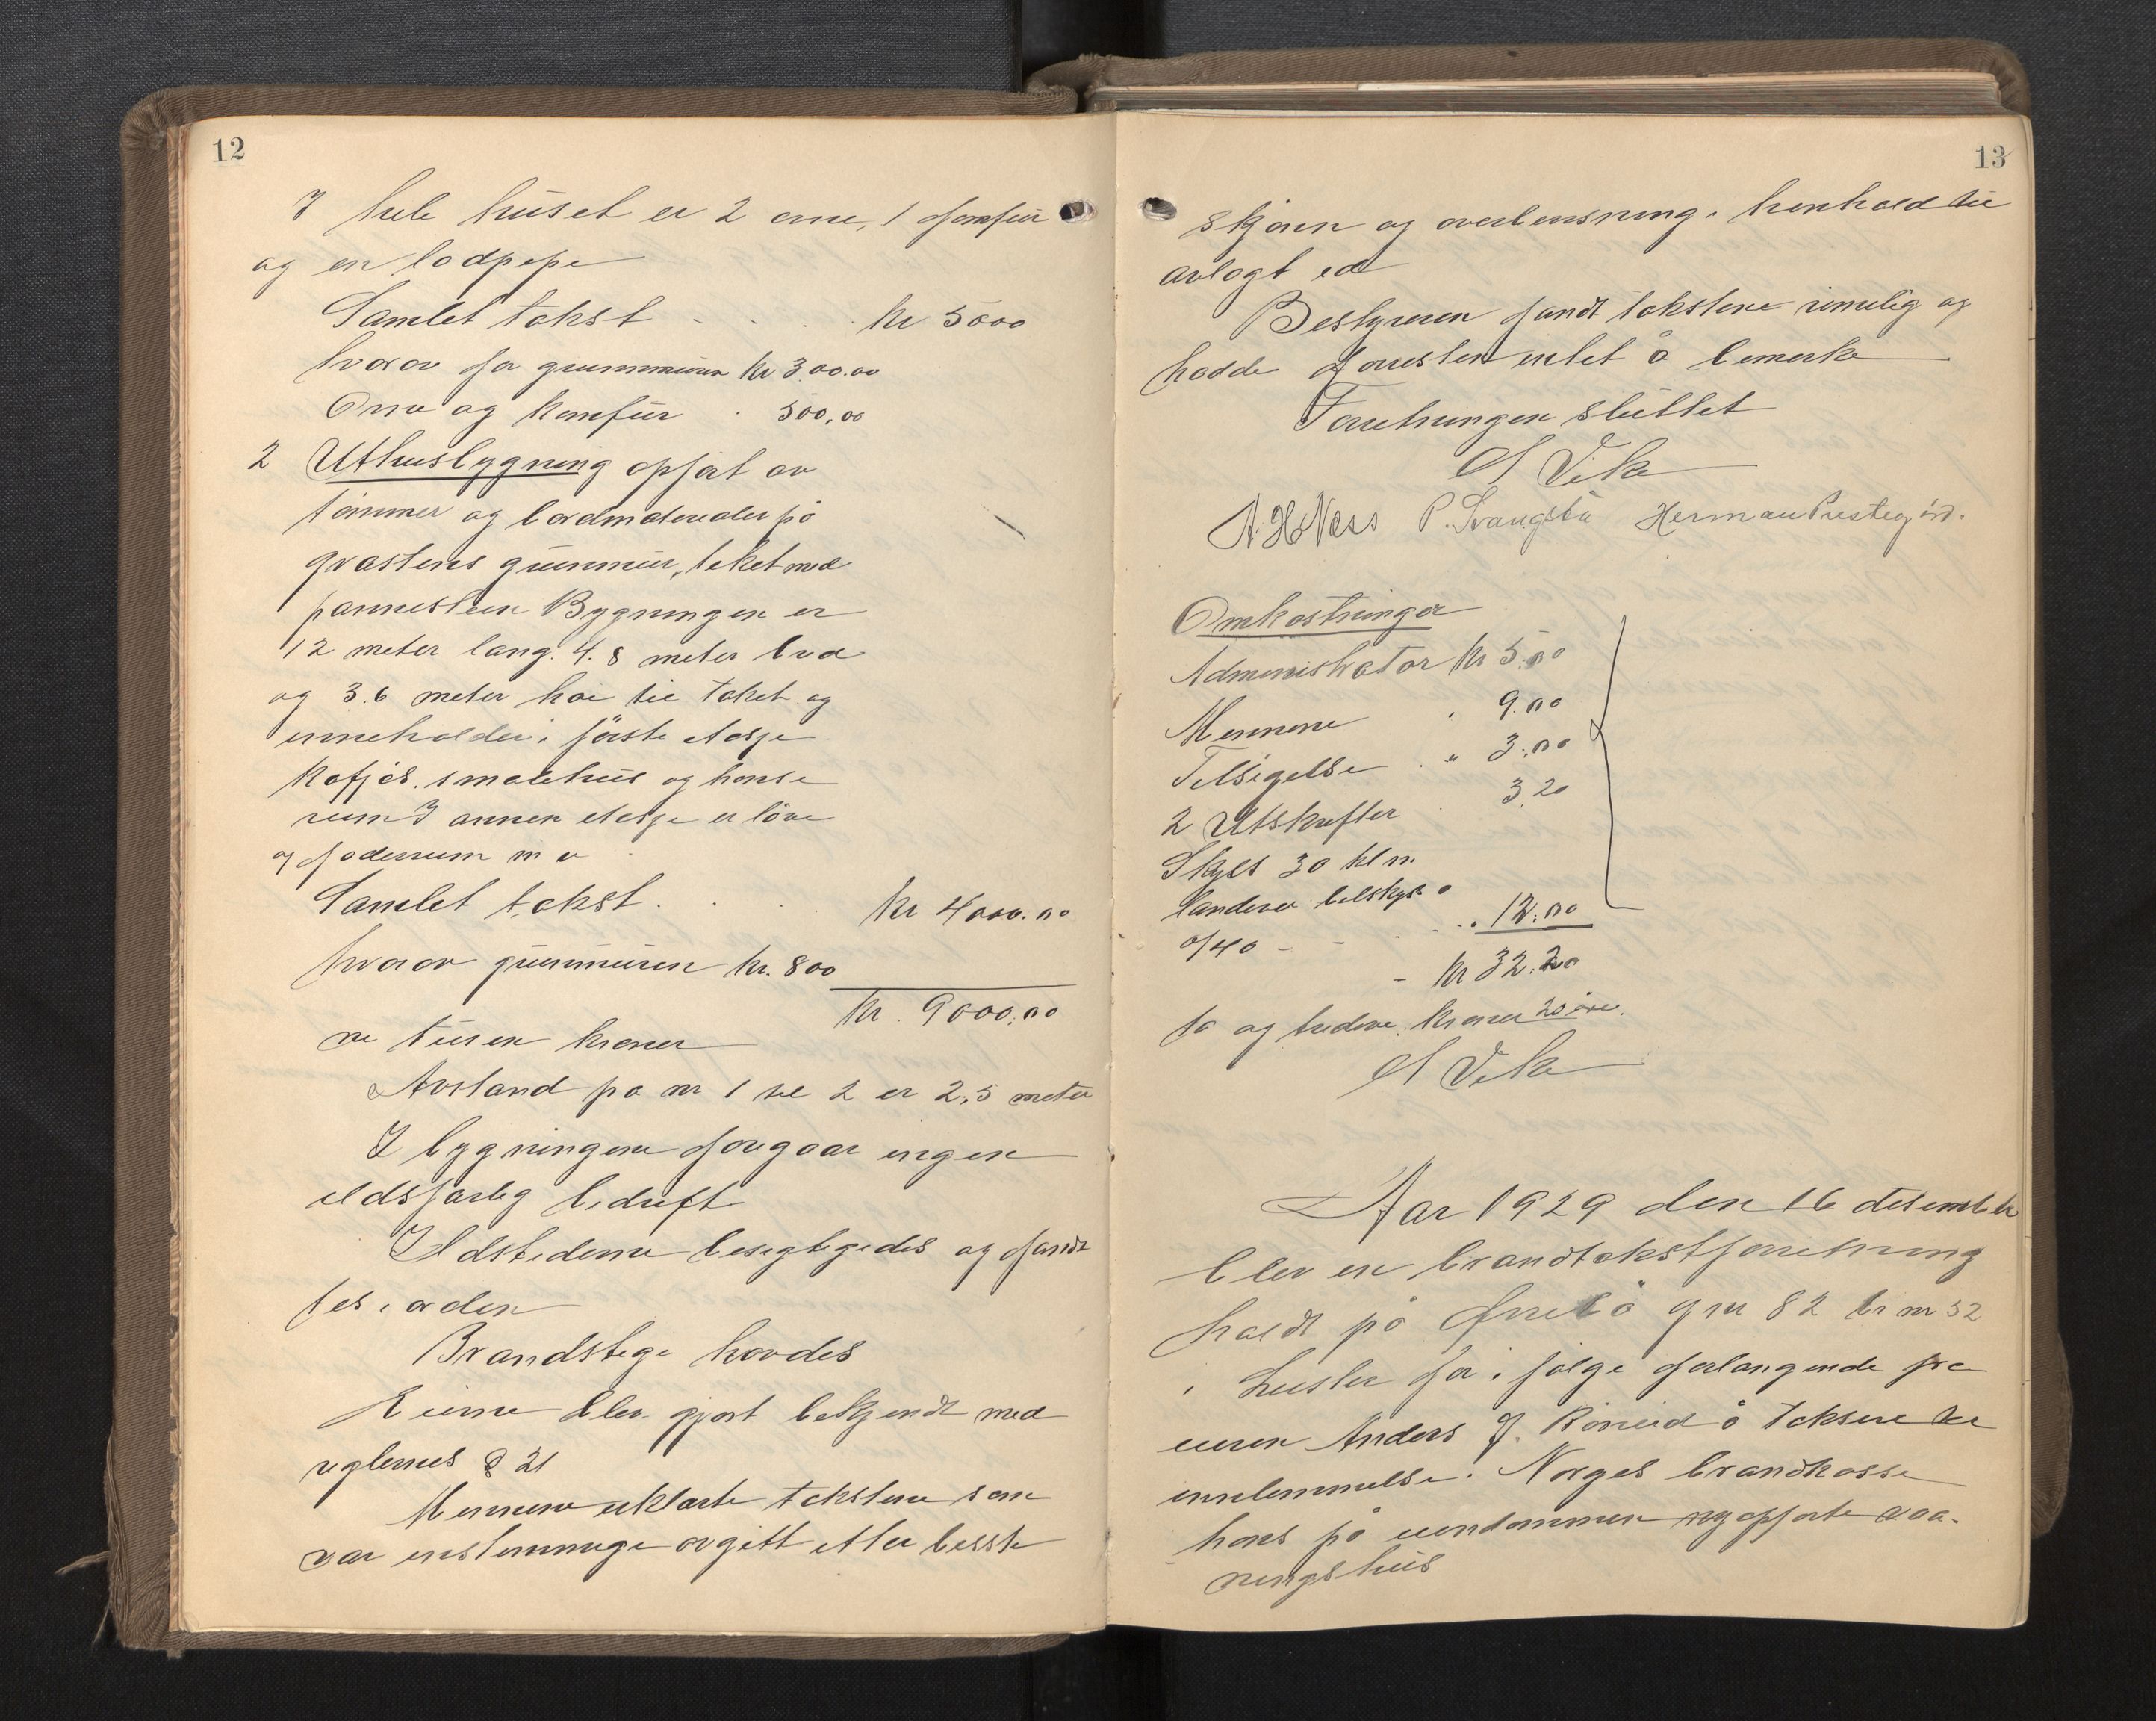 12
I hele huset er 2 ovne, 1 komfür
og en lodpipe
Samlet takst - - . . kr 5000
hvorav for grunnmüren kr 300.00
Ovne og komfür . 500,00
2 Uthusbygning opført av
tömmer og bordmaterialer på
gråstens grünmür, tekket med
pannesteen Bygningen er
12 meter lang. 4.8 meter bred
og 3.6 meter høi til taket og
inneholder i förste etasje
kofjøs. smalehüs og hønse
rum I annen etasje er löve
og foderrum m v
Samlet takst . . . kr 4000.00
hvorav grünmüren kr. 800
kr. 9000.00
ni tüsen kroner
Avstand fra nr 1 til 2 er 2,5 meter
I bygningene foregaar ingen
ildsfarlig bedrift
Ildstederne besigtigedes og fandt
tes i orden
Brandstige havdes
Eieren blev gjort bekjendt med
reglernes § 21
Mennene erklærte takstene som
var enstemmige avgitt efter beste
13
skjønn og overbevisning i henhold til
avlagt ed
Bestyreren fandt takstene rimelig og
hadde forresten intet å bemerke
Forretningen slüttet
A Vike
A. H. Ness P. Svangstu Herman Prestegård.
Omkostninger
Administrator kr 5.00
Mennene . 9.00
Tilsigelse . " 3.00
2 Utskrifter . 3.20
Skyss 30 klm.
landevei bilskyss a
o/40 - - - . . 12.00
- kr 32.20
to og tredive kroner 20 øre.
A Vike
Aar 1929 den 16 desember
blev en brandtakstforretning
holdt på gnr 82 br nr 32
i Luster for i følge forlangende fra
eieren Anders J. å taksere til
innlemmelse i Norges brandkasse
hans på eiendommen nyopførte vaa-
ningshüs